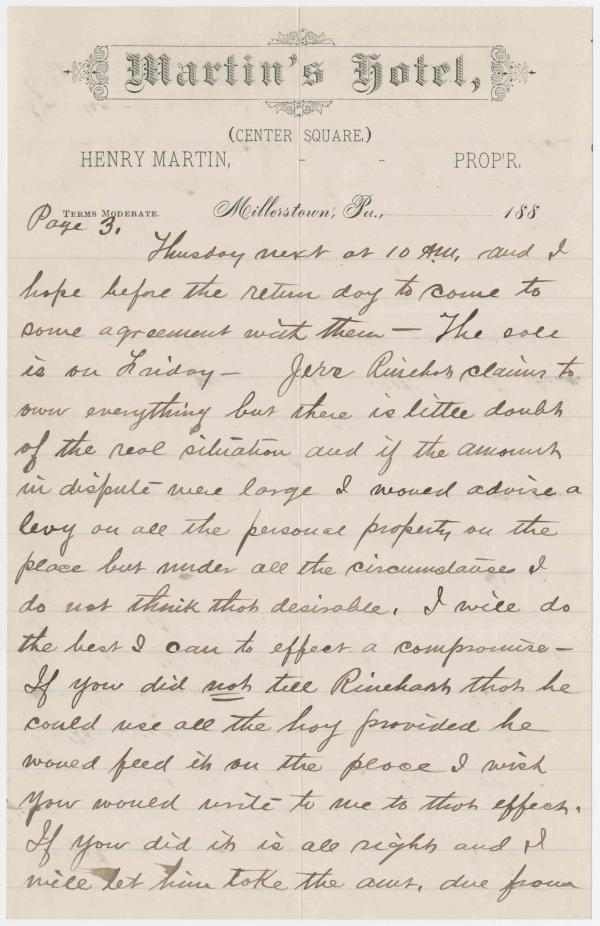 Martin's Hotel,
(CENTER SQUARE.)
HENRY MARTIN, - - PROP'R.
TERMS MODERATE. Millerstown, Pa., 188
Page 3.
Thusday next at 10 AM. and I
hope before the return day to come to
some agreement with them — The sale
is on Friday — Jere Rinehart claims to
own everything but there is little doubt
of the real situation and if the amount
in dispute were large I would advise a
levy on all the personal property on the
place but under all the circumstances I
do not think that desirable. I will do
the best I can to effect a compromise —
If you did not tell Rinehart that he
could use all the hay provided he
would feed it on the place I wish
you would write to me to that effect.
If you did it is all right and I
will let him take the amt. due from